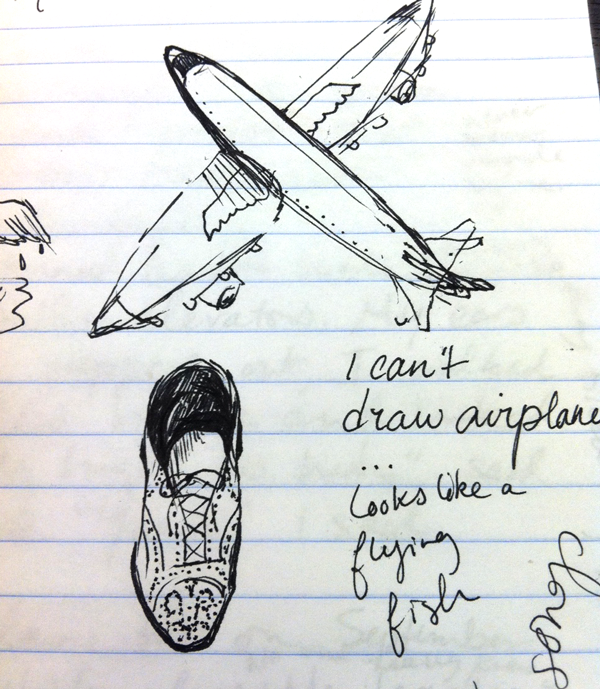 I can't
draw airplane
...
looks like a
flying
fish